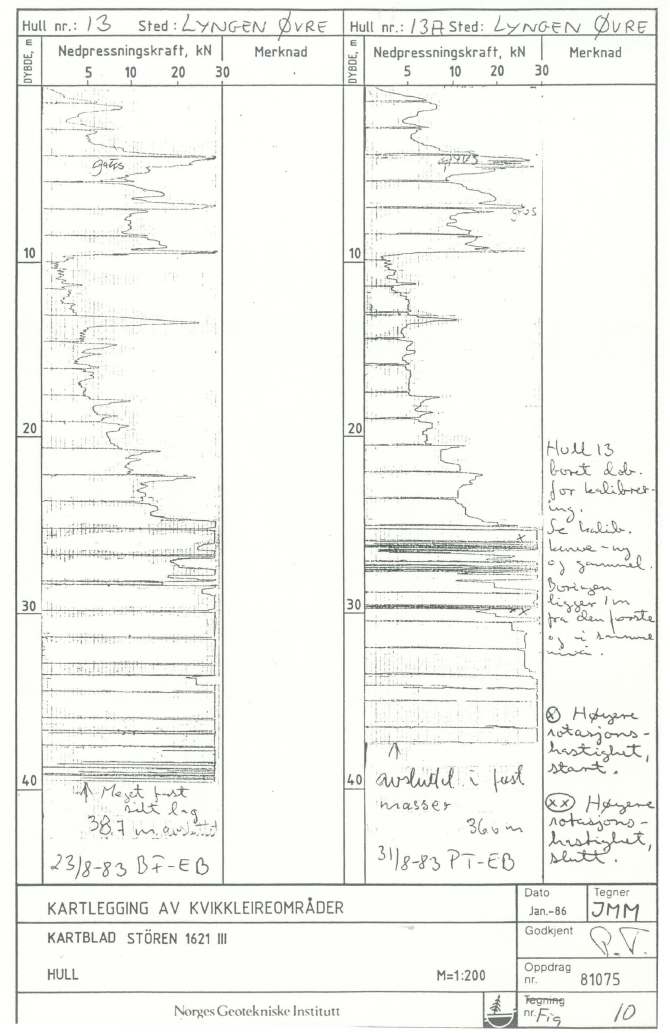 Hull nr.: 13 Sted: LYNGEN ØVRE
DYBDE, m
Nedpressningskraft, kN
Merknad
5 10 20 30
grus
10
20
30
40
Meget fast
silt lag
38.7 m avsluttet
23/8-83 BF-EB
Hull nr.: 13A Sted: LYNGEN ØVRE
DYBDE, m
Nedpressningskraft, kN
Merknad
5 10 20 30
grus
grus
10
20
30
40
x
xx
avsluttet i fast
masser
36.0 m
31/8-83 PT-EB
Hull 13
boret dob.
for kalibrer-
ing.
Se kalib.
kurve - ny
og gammel.
Boringen
ligger 1m
fra den første
og i samme
nivå.
(x) Høyere
rotasjons-
hastighet,
start.
(xx) Høyere
rotasjons-
hastighet,
slutt.
KARTLEGGING AV KVIKKLEIREOMRÅDER
KARTBLAD STÖREN 1621 III
HULL M=1:200
Dato
Jan.-86
Tegner
JMM
Godkjent
Oppdrag
nr. 81075
Tegning
nr. Fig 10
Norges Geotekniske Institutt